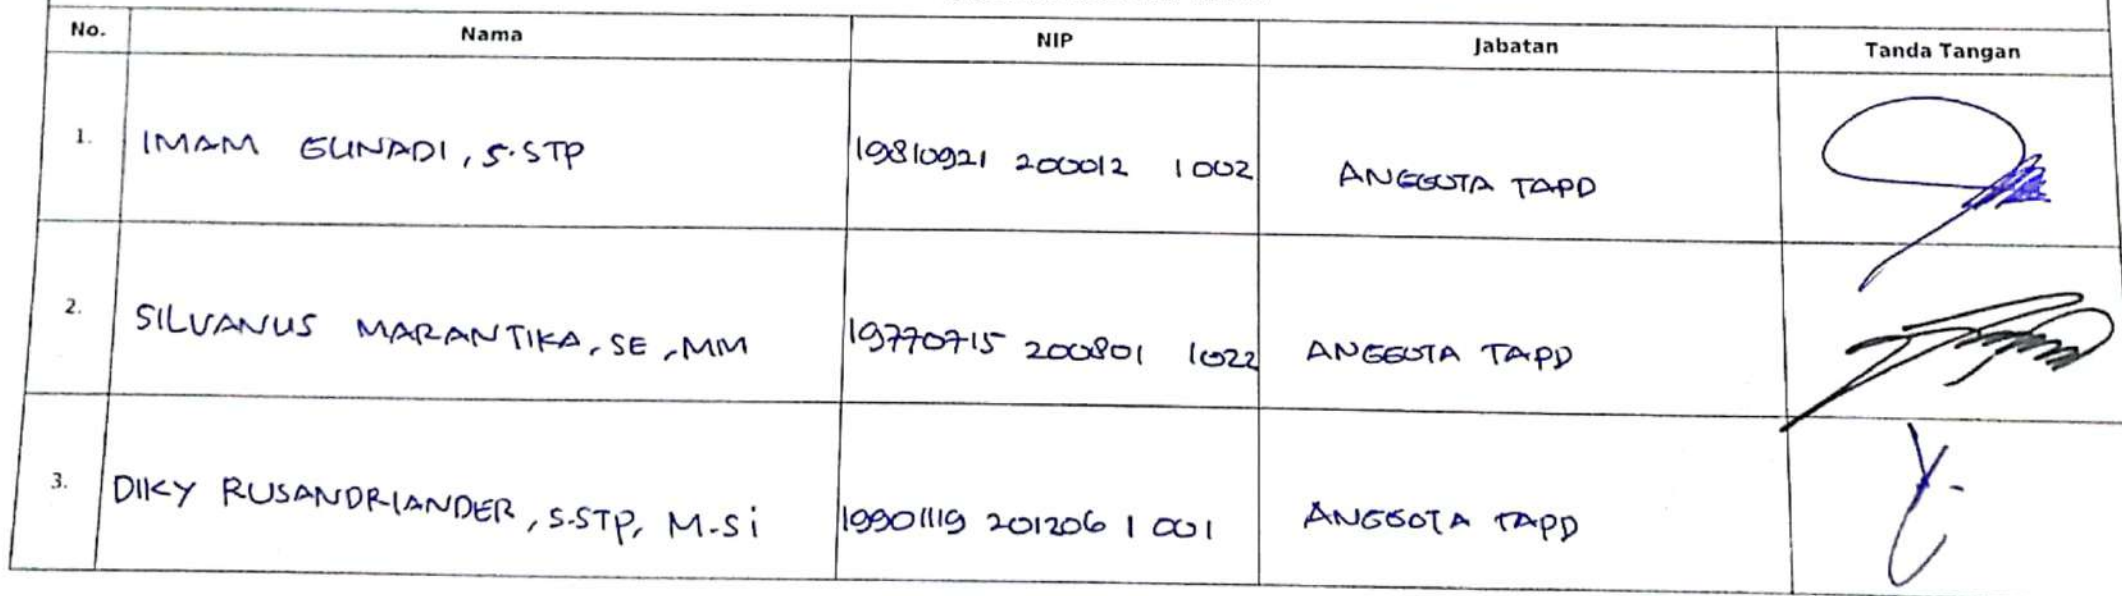 No. Nama NIP Jabatan Tanda Tangan
1. IMAM GUNADI, S.STP 19810921 200012 1002 ANGGOTA TAPD
2. SILVANUS MARANTIKA, SE, MM 19770715 200801 1022 ANGGOTA TAPD
3. DIKY RUSANDRIANDER, S.STP, M.Si 19901119 201206 1 001 ANGGOTA TAPD